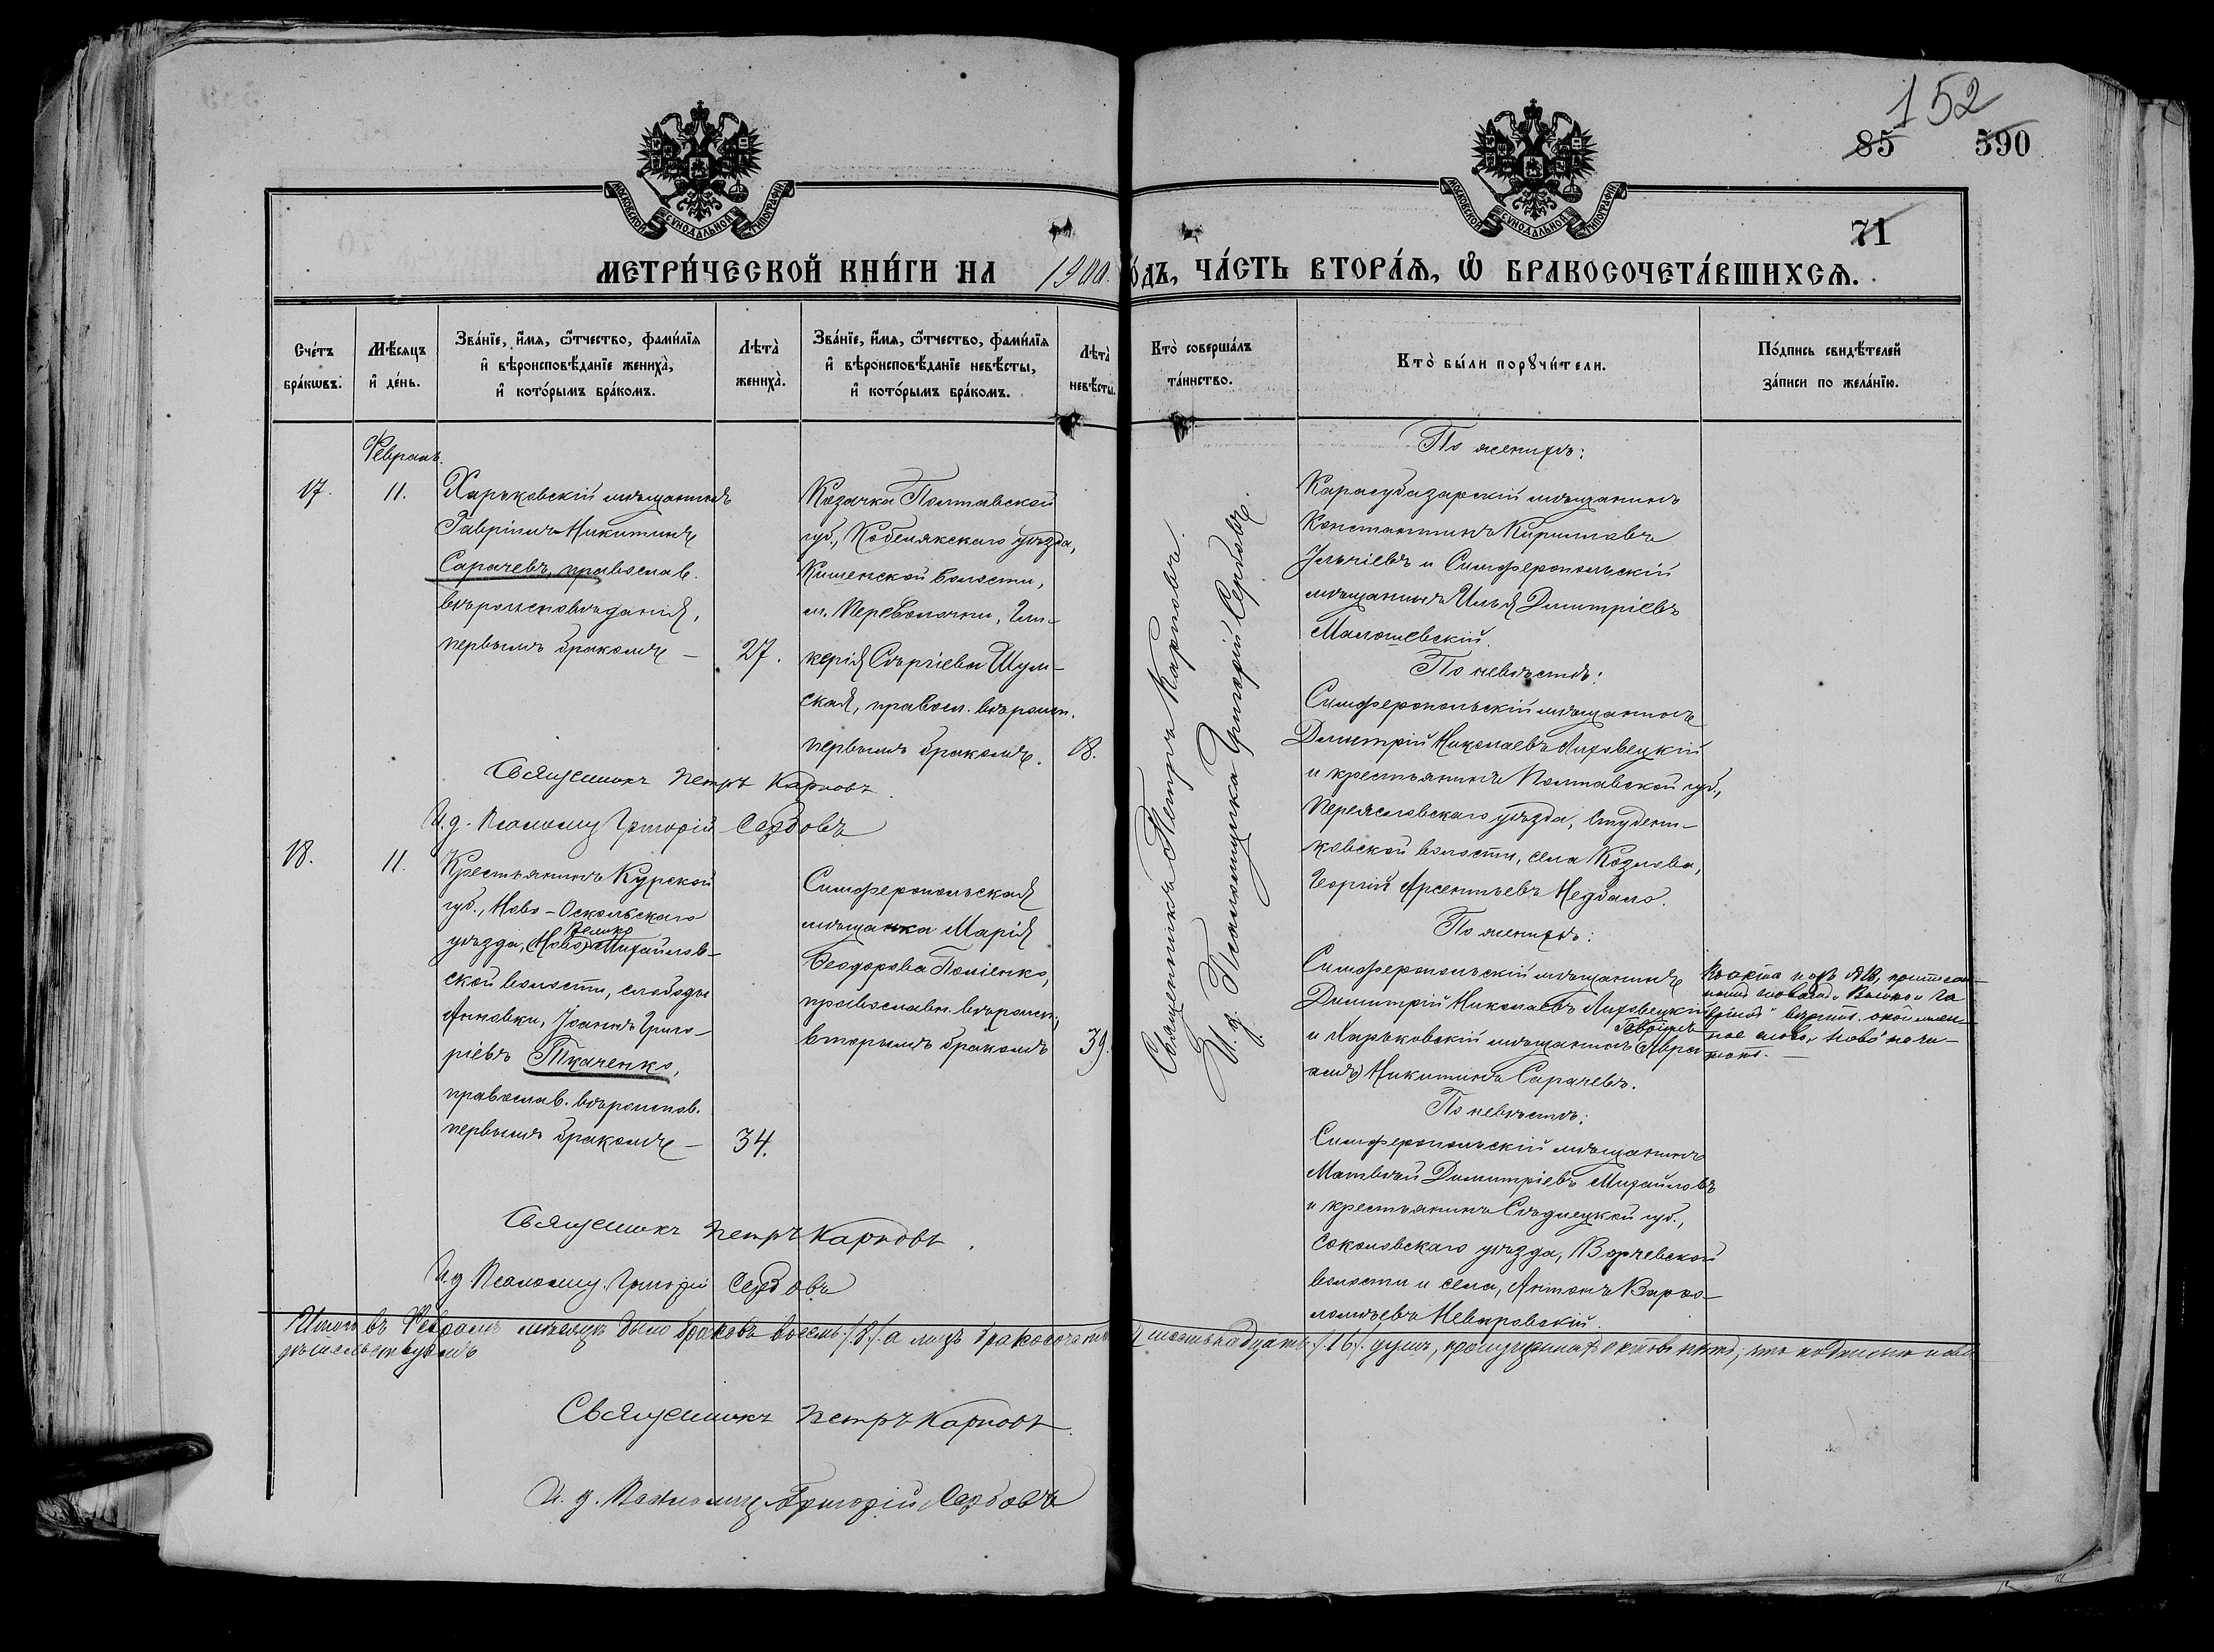 152
85 590
71
МОСКОВСКОЙ СѴНОДАЛЬНОЙ ТИПОГРАФІИ
МОСКОВСКОЙ СѴНОДАЛЬНОЙ ТИПОГРАФІИ
МЕТРИ́ЧЕСКОЙ КНИ́ГИ НА 1900 ГО́ДЪ, ЧА́СТЬ ВТОРА́Ѧ, Ѡ҆ БРАКОСОЧЕТА́ВШИХСѦ.
Сче́тъ бра́кѡвъ.
Мѣ́сѧцъ и҆ де́нь.
Зва́нїе, и҆́мѧ, ѻ҆́тчество, фами́лїѧ и҆ вѣроисповѣ́данїе жениха̀, и҆ кото́рымъ бра́комъ.
Лѣта̀ жениха̀.
Зва́нїе, и҆́мѧ, ѻ҆́тчество, фами́лїѧ и҆ вѣроисповѣ́данїе невѣ́сты, и҆ кото́рымъ бра́комъ.
Лѣта̀ невѣ́сты.
Кто̀ соверша́лъ та́инство.
Кто̀ бы́ли порꙋчи́тели.
По́дпись свидѣ́телей за́писи по жела́нїю.
Февраль.
17.
11.
Харьковскій мѣщанинъ
Гавріилъ Никитинъ
Сарачевъ, православ.
вѣроисповѣданія,
первымъ бракомъ –
27.
Козачка Полтавской
губ., Кобелякскаго уѣзда,
Кишенской волости,
м. Переволочни, Гли-
керія Сергіева Шум-
ская, правосл. вѣроисп.
первымъ бракомъ.
18.
Священникъ Петръ Карповъ.
И. д. Псаломщика Григорій Сербовъ.
По женихѣ:
Карасубазарскій мѣщанинъ
Константинъ Кирилловъ
Ильчіевъ и Симферопольскій
мѣщанинъ Илья Димитріевъ
Малошевскій.
По невѣстѣ:
Симферопольскій мѣщанинъ
Димитрій Николаевъ Лиховецкій
и крестьянинъ Полтавской губ.,
Переяславскаго уѣзда, Студени-
ковской волости, села Козлова,
Георгій Арсентьевъ Недбало.
Священникъ Петръ Карповъ.
И. д. Псаломщ Григорій Сербовъ
18.
11.
Крестьянинъ Курской
губ., Ново-Оскольскаго
уѣзда, (Ново) Велико Михайлов-
ской волости, слободы
Анновки, Іоаннъ Григо-
ріевъ Ткаченко,
православ. вѣроиспов.
первымъ бракомъ –
34.
Симферопольская
мѣщанка Марія
Ѳеодорова Поліенко,
православн. вѣроисп.,
вторымъ бракомъ
39.
По женихѣ:
Симферопольскій мѣщанинъ
Димитрій Николаевъ Лиховецкій
и Харьковскій мѣщанинъ Гавріилъ (Авра
амъ) Никитинъ Сарачевъ.
По невѣстѣ:
Симферопольскій мѣщанинъ
Матвѣй Димитріевъ Михайловъ
и крестьянинъ Сѣдлецкой губ.,
Соколовскаго уѣзда,
волости и села, Антонъ Варѳо-
ломѣевъ
Священникъ Петръ Карповъ.
И. д. Псаломщ. Григорій Сербовъ
Итого въ Февралѣ мѣсяцѣ было браковъ восемь /8/ а лицъ шестьнадцать /16/ душъ,
Священникъ Петръ Карповъ.
И. д. Псаломщ Григорій Сербовъ